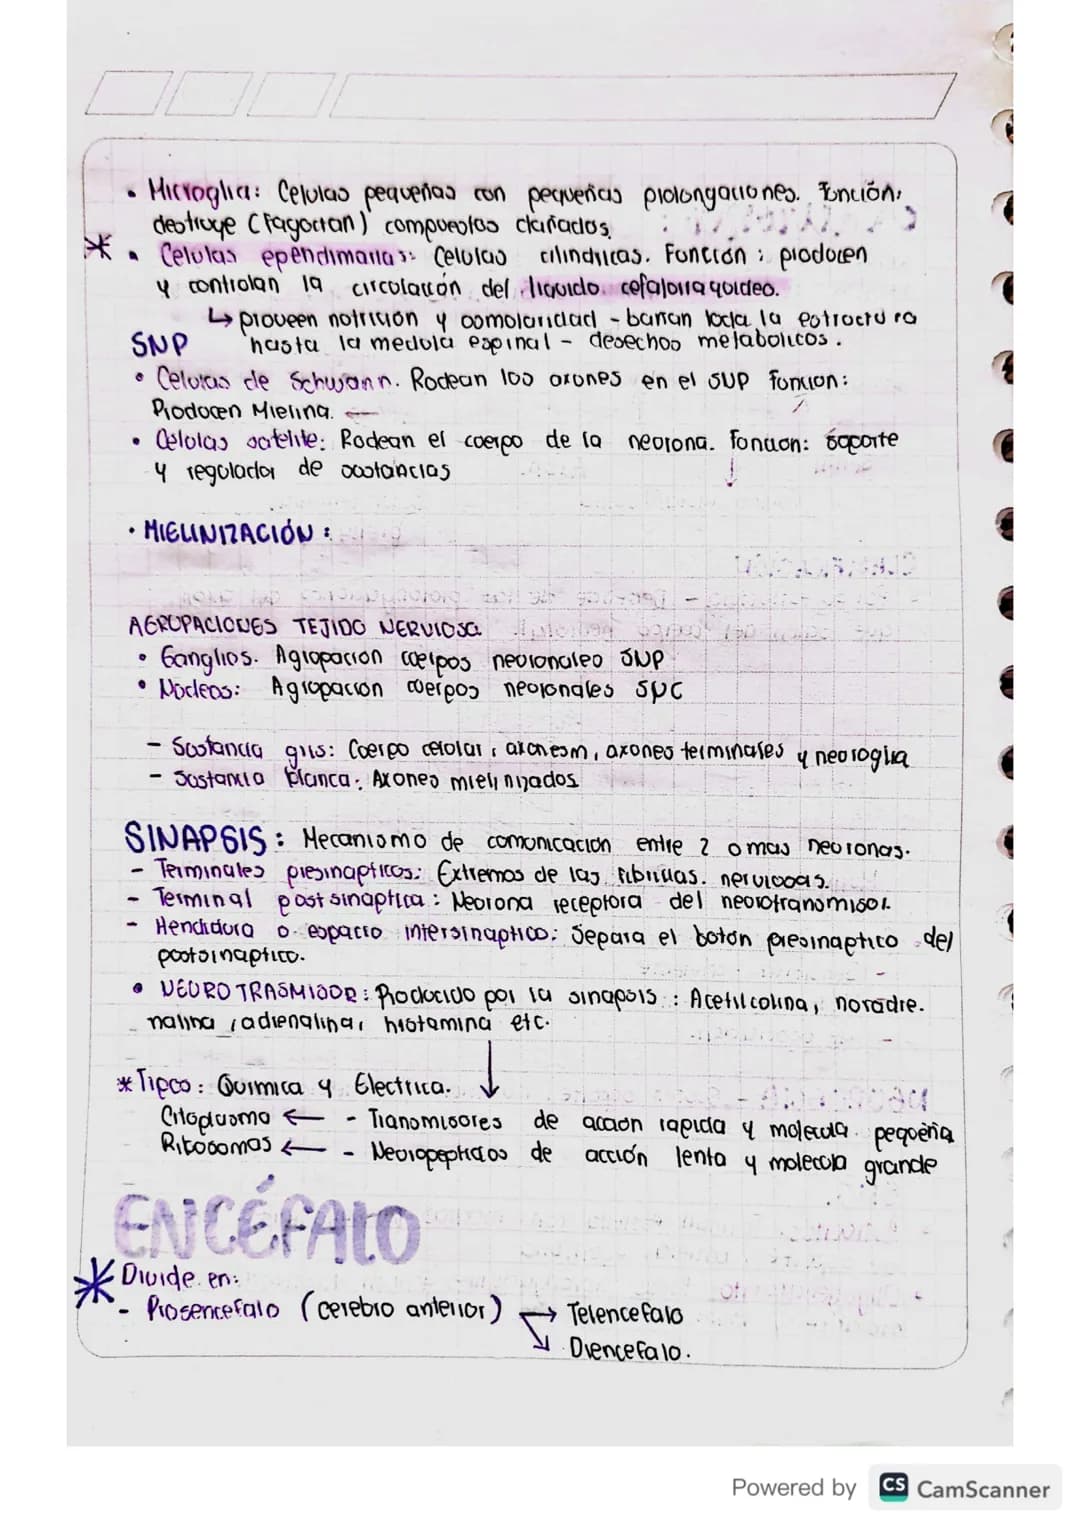 • Microglia: Celulas pequeñas con pequeñas prolongaciones. Función:
destruye (Fagocitan) compuestos dañados.
* • Celulas ependimarias: Celulas cilindricas. Función: producen
y controlan la circulación del liquido cefalorraquideo.
↳ proveen nutrición y osmolaridad - bañan toda la estructura
hasta la medula espinal - desechos metabolicos.
SNP
• Celulas de Schwann. Rodean los axones en el SNP Función:
Producen Mielina. ←
• Celulas satelite: Rodean el cuerpo de la neurona. Función: soporte
y regulador de sustancias ↓
• MIELINIZACIÓN:
AGRUPACIONES TEJIDO NERVIOSO
• Ganglios. Agrupación cuerpos neuronales SNP
• Nucleos: Agrupación cuerpos neuronales SNC
- Sustancia gris: Cuerpo celular, axones m, axones terminales y neuroglia
- Sustancia blanca: Axones mielinizados
SINAPSIS: Mecanismo de comunicacion entre 2 o mas neuronas.
- Terminales presinapticos: Extremos de las fibrillas. nerviosas.
- Terminal postsinaptica: Neurona receptora del neurotransmisor.
- Hendidura o espacio intersinaptico: Separa el boton presinaptico del
postsinaptico.
• NEUROTRASMISOR: Producido por la sinapsis: Acetilcolina, noradre.
nalina, adrenalina, histamina etc.
* Tipos: Quimica y Electrica. ↓
Citoplasma ← - Transmisores de acción rapida y molecula pequeña
Ribosomas ← - Neuropeptidos de acción lenta y molecula grande
ENCÉFALO
* Divide en:
- Prosencefalo (cerebro anterior) → Telencefalo
↘ Diencefalo.
Powered by CS CamScanner